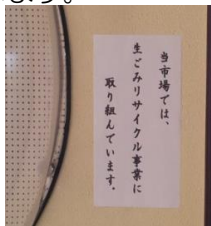 当市場では、
生ごみリサイクル事業に
取り組んでいます。